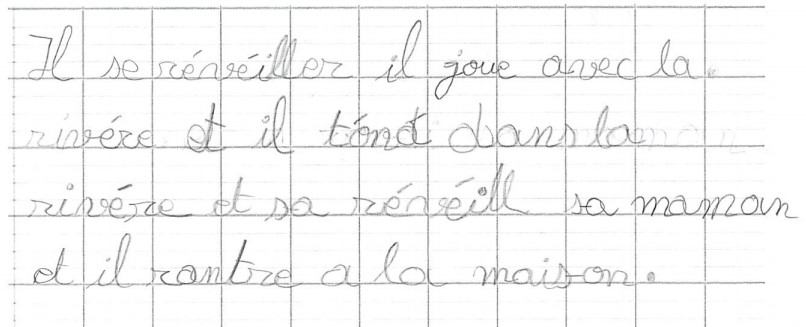 Il se rénvéiller il joue avec la
rivére et il tond dans la
rivére et sa rénvéill sa maman
et il rantre a la maison.